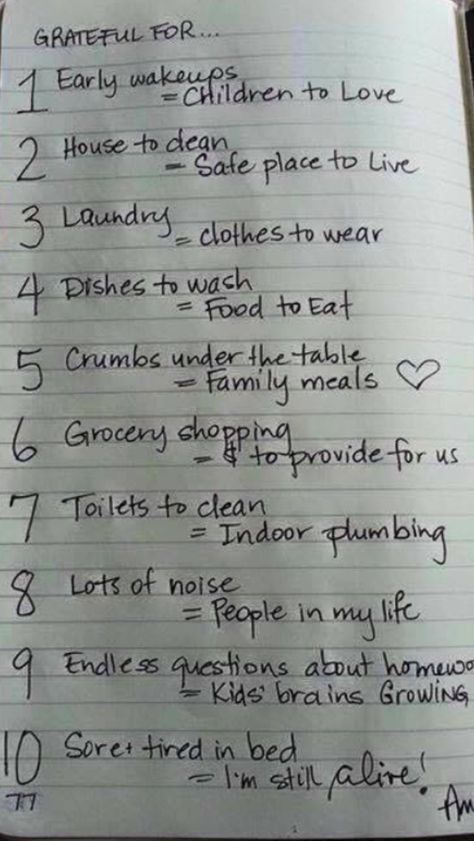 GRATEFUL FOR...
1 Early wakeups
= Children to Love
2 House to clean
= Safe place to Live
3 Laundry
= clothes to wear
4 Dishes to wash
= Food to Eat
5 Crumbs under the table
= Family meals ♡
6 Grocery shopping
= $ to provide for us
7 Toilets to clean
= Indoor plumbing
8 Lots of noise
= People in my life
9 Endless questions about homewo
= Kids' brains GROWING
10 Sore + tired in bed
= I'm still alive!
Am